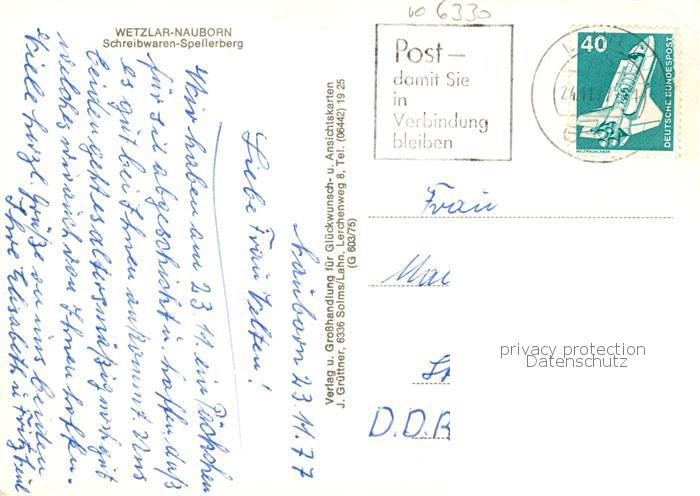 WETZLAR-NAUBORN
Schreibwaren-Spellerberg
Nauborn 23.11.77
Liebe Frau Velten!
Wir haben am 23.11. ein Päckchen
für Sie abgeschickt u. hoffen, daß
es gut bei Ihnen ankommt. Uns
beiden geht es altersmäßig noch gut
welches wir auch von Ihnen hoffen.
Viele herzl. Grüße von uns beiden
Ihre Elisabeth u. Fritz
Verlag u. Großhandlung für Glückwunsch- u. Ansichtskarten
J. Grüttner, 6336 Solms/Lahn, Lerchenweg 8, Tel. (06442) 19 25
(G 603/75)
6330
Post –
damit Sie
in
Verbindung
bleiben
24.11.77
40
DEUTSCHE BUNDESPOST
WELTRAUMLABOR
Frau
D.D.R
privacy protection
Datenschutz